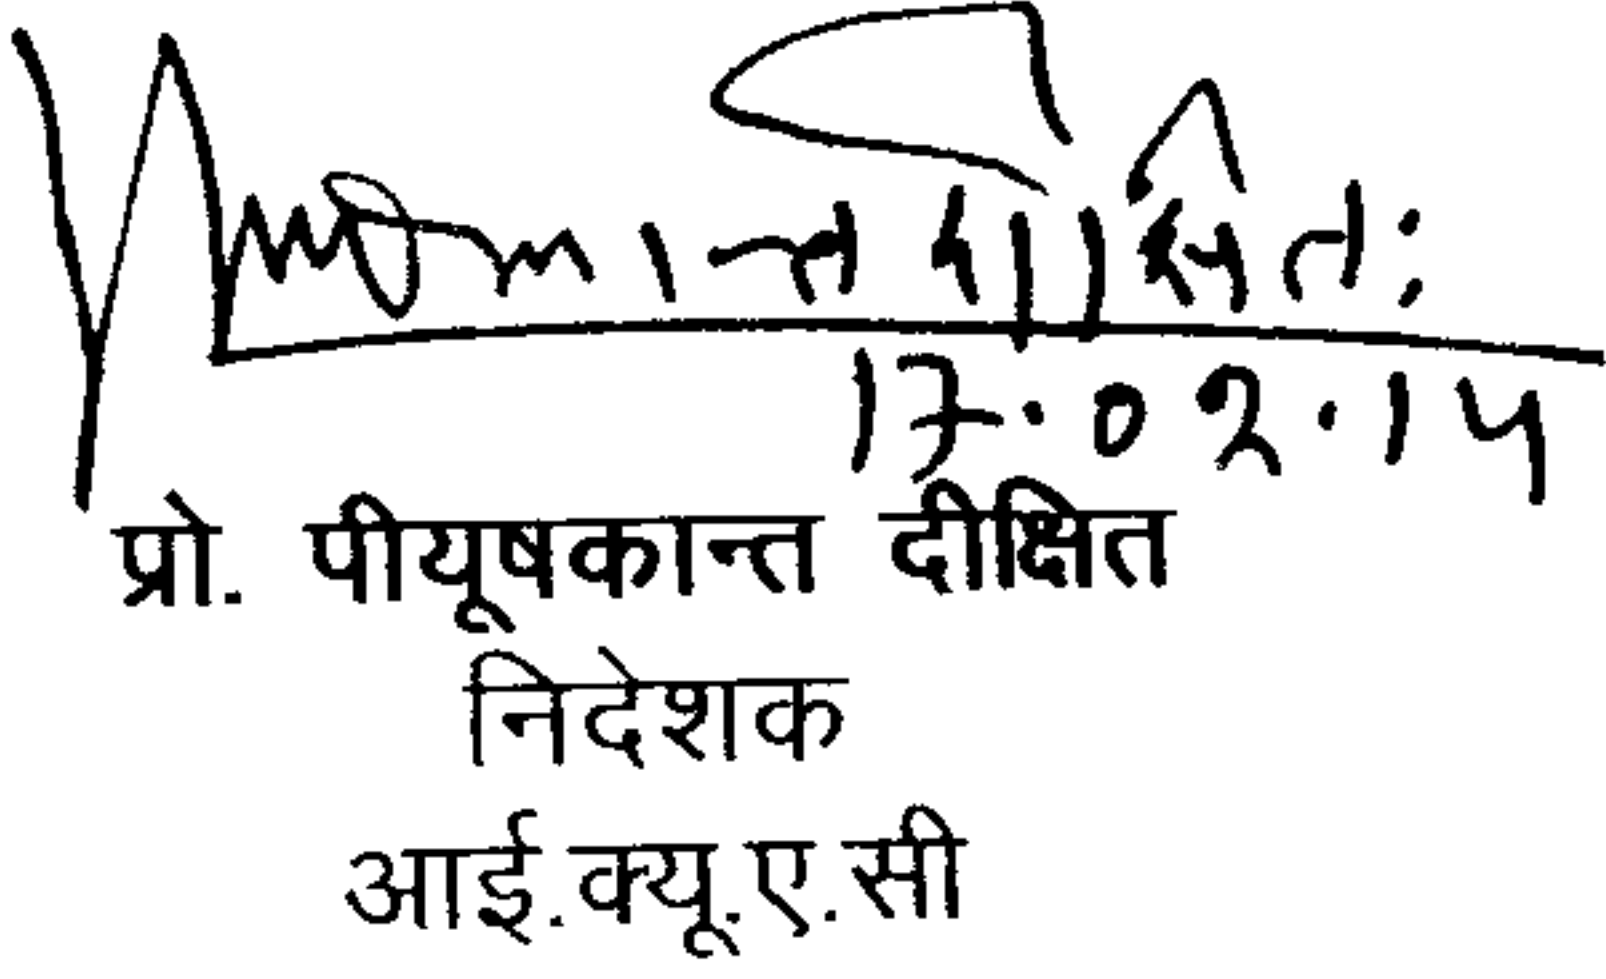 दीक्षितः
17.02.14
प्रो. पीयूषकान्त दीक्षित
निदेशक
आई.क्यू.ए.सी